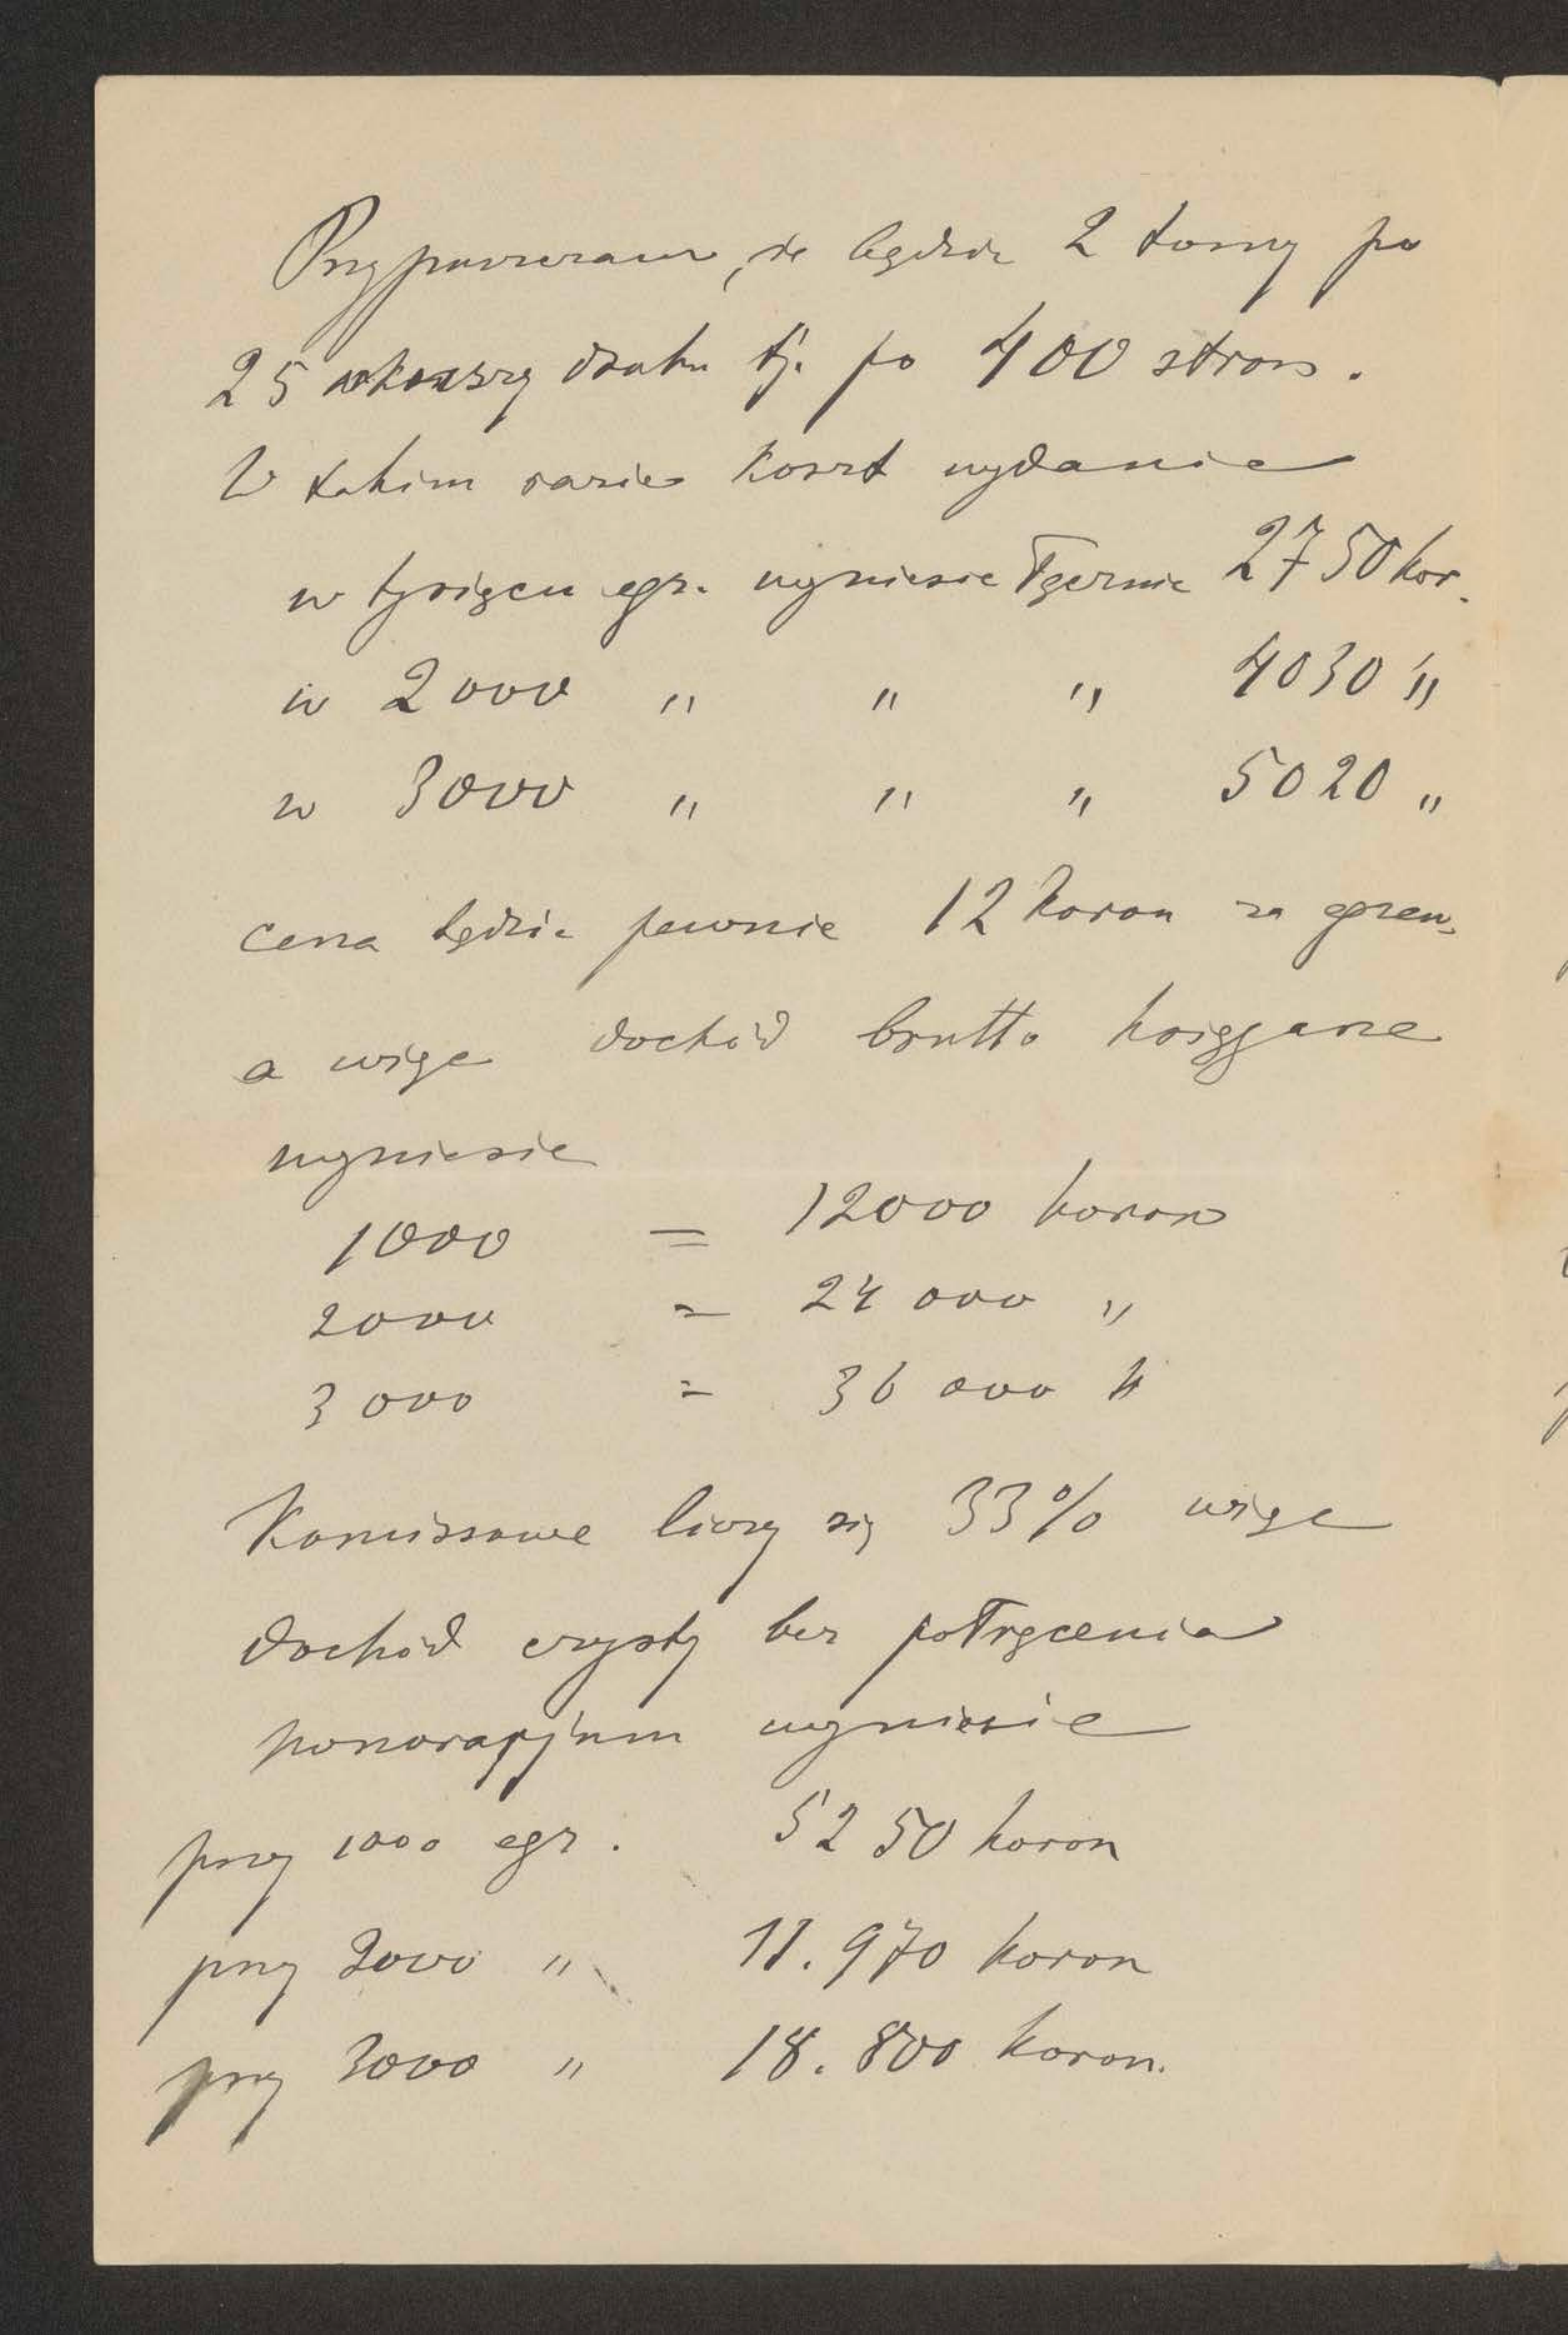 Przypuszczam, że będzie 2 tomy po
25 arkuszy druku tj. po 400 stron.
W takim razie koszt wydania
w tysiącu egz. wyniesie łącznie 2750 kor.
w 2000 " " " 4030 "
w 3000 " " " 5020 "
cena będzie pewnie 12 koron za egzem.
a więc dochód brutto księgarze
wyniesie
1000 = 12000 koron
2000 = 24 000 "
3 000 = 36 000 "
Komissowe liczy się 33% więc
dochód czysty bez potrącenia
honorarjum wyniesie
przy 1000 egz. 5250 koron
przy 2000 " 11.970 koron
przy 3000 " 18.800 koron.